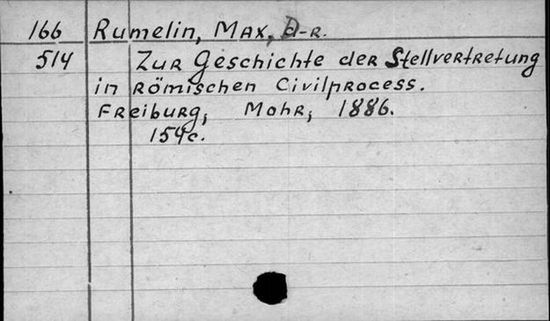 166 Rumelin, Max, D-r.
514 Zur Geschichte der Stellvertretung
in Römischen Civilprocess.
Freiburg, Mohr, 1886.
154c.